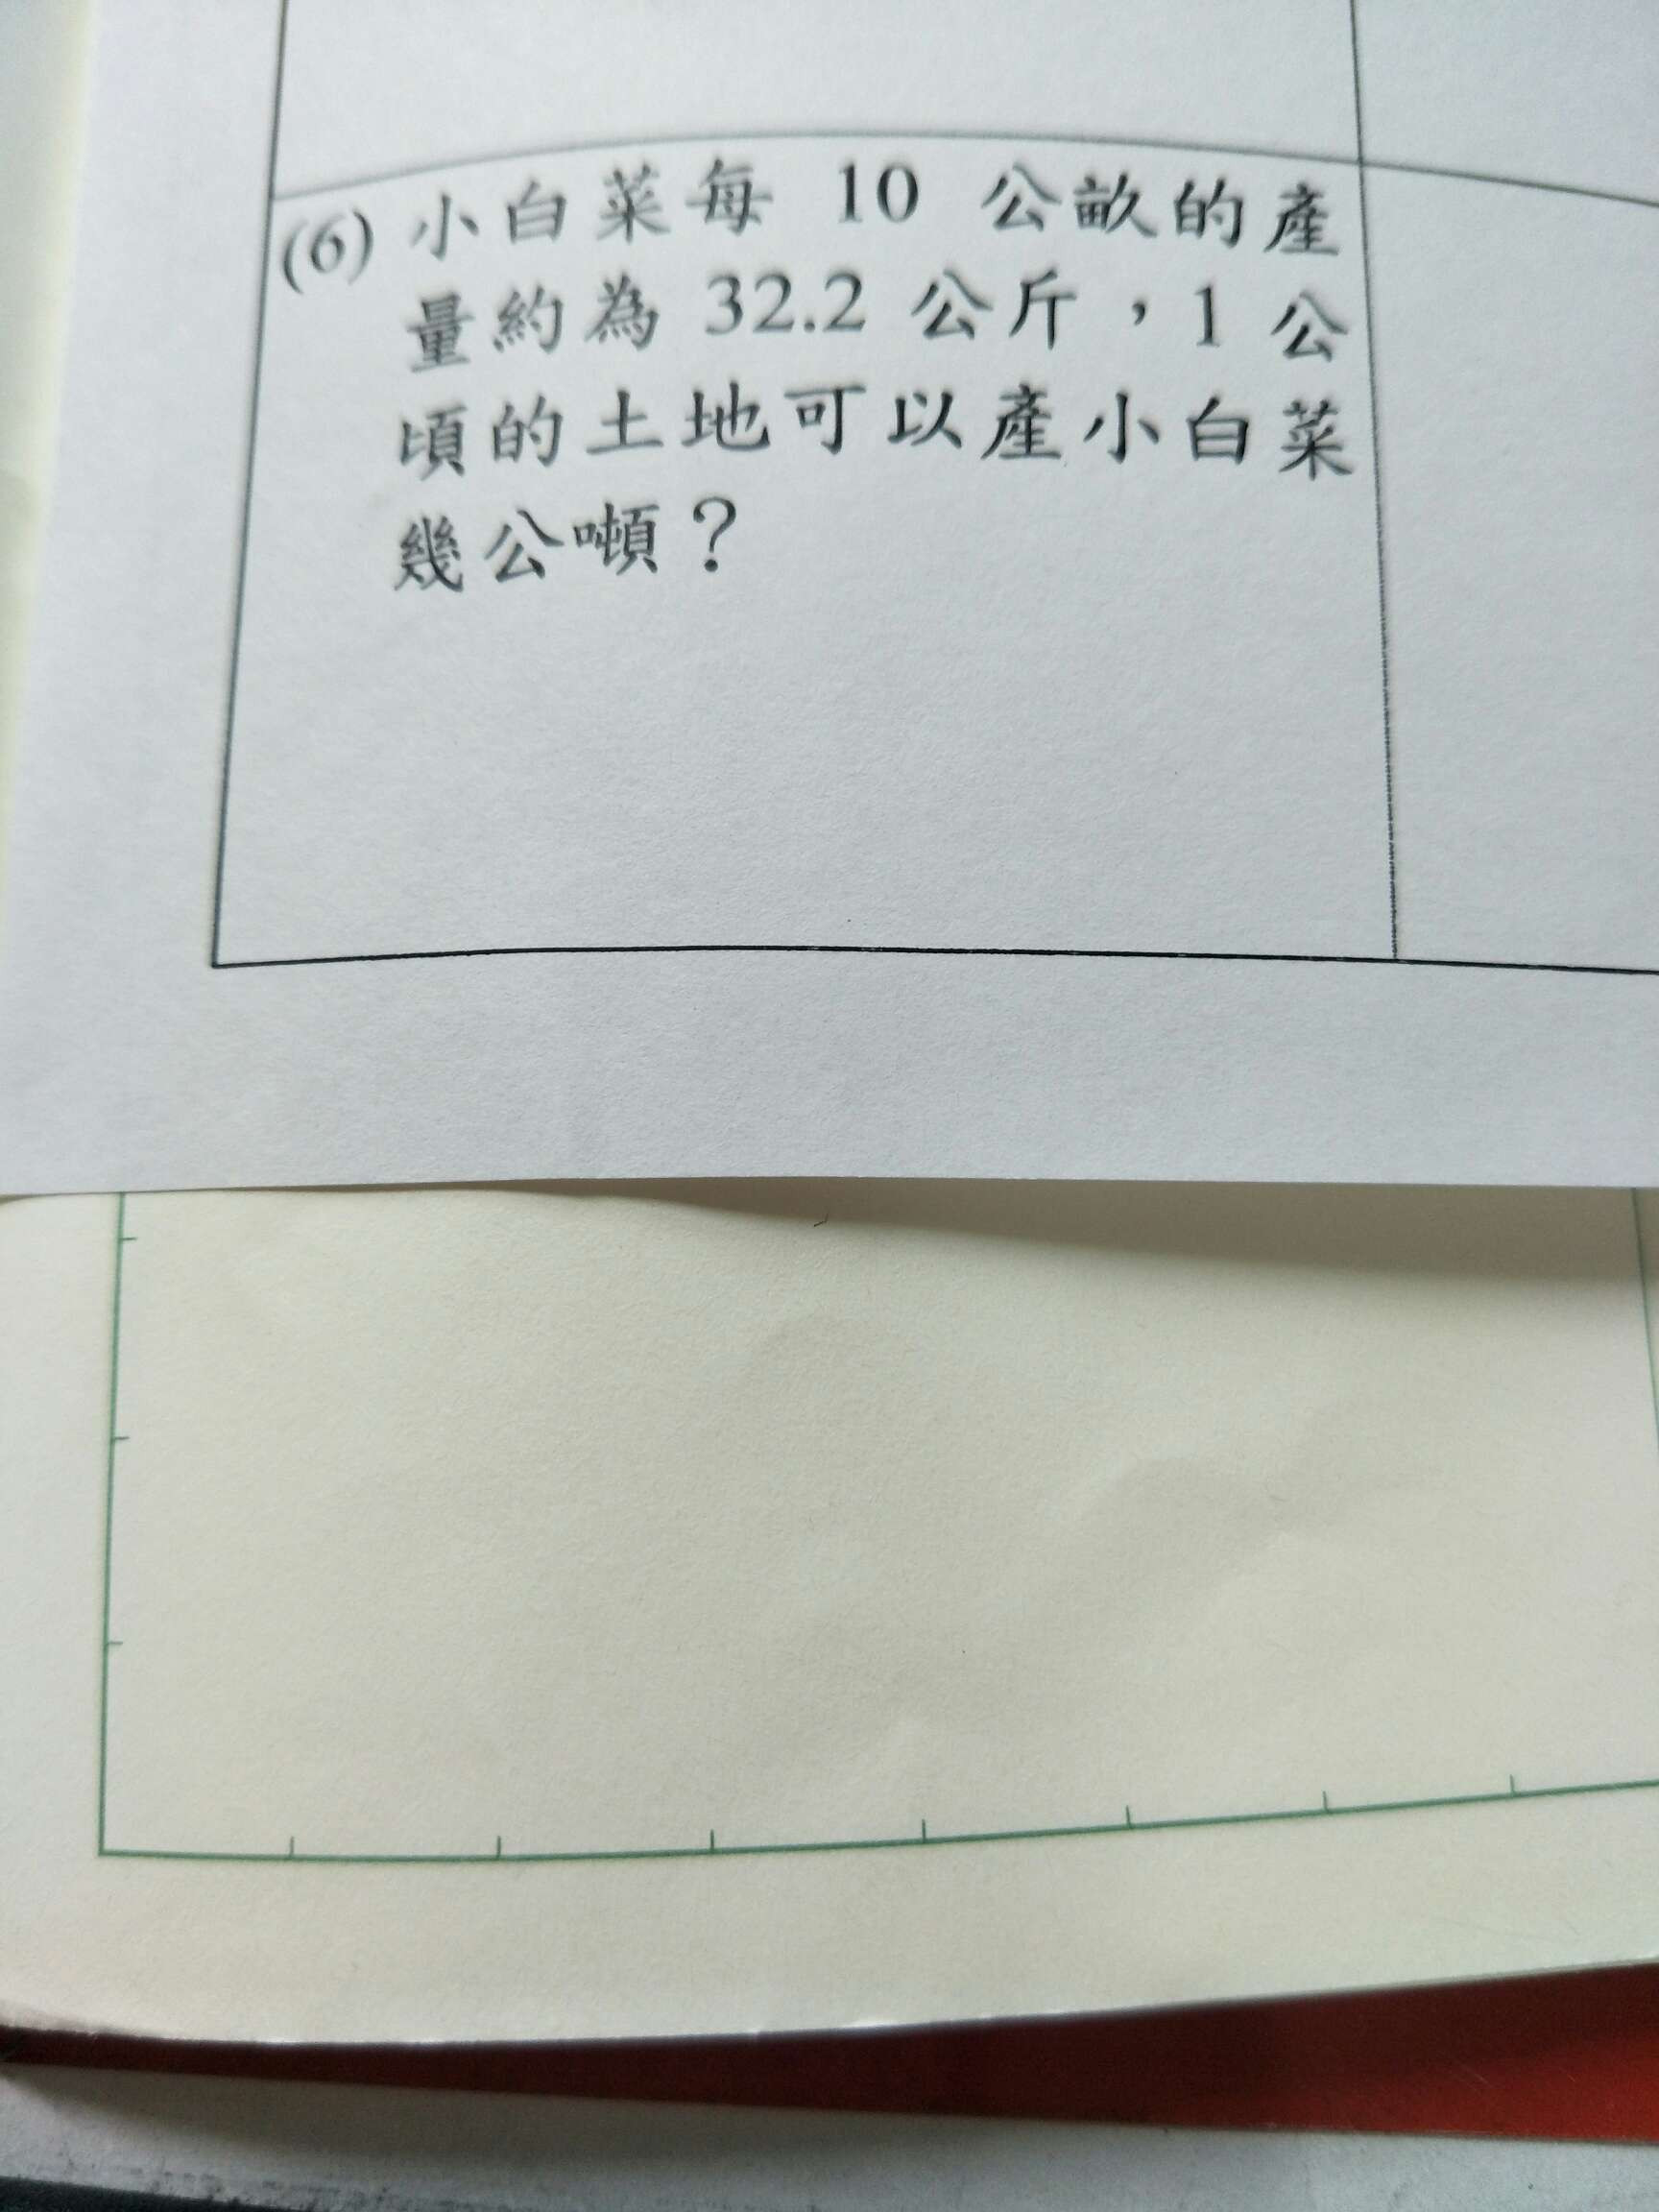 (6) 小白菜每 10 公畝的產
量約為 32.2 公斤，1 公
頃的土地可以產小白菜
幾公噸？